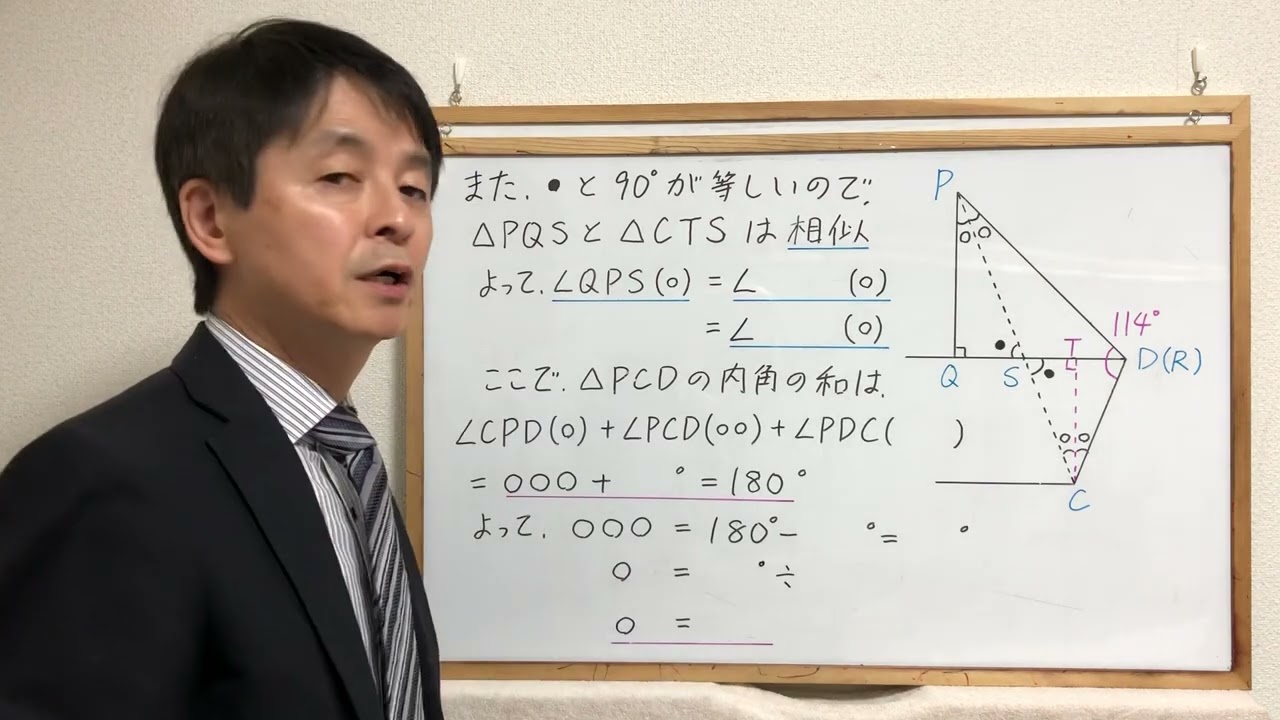 また、●と90°が等しいので、
△PQSと△CTSは相似
よって、∠QPS(○) = ∠ (○)
= ∠ (○)
ここで、△PCDの内角の和は、
∠CPD(○) + ∠PCD(○○) + ∠PDC( )
= ○○○ + ° = 180°
よって、○○○ = 180° - ° = °
○ = ° ÷
○ =
P
○ ○
114°
● T
Q S ● D(R)
○ ○
C